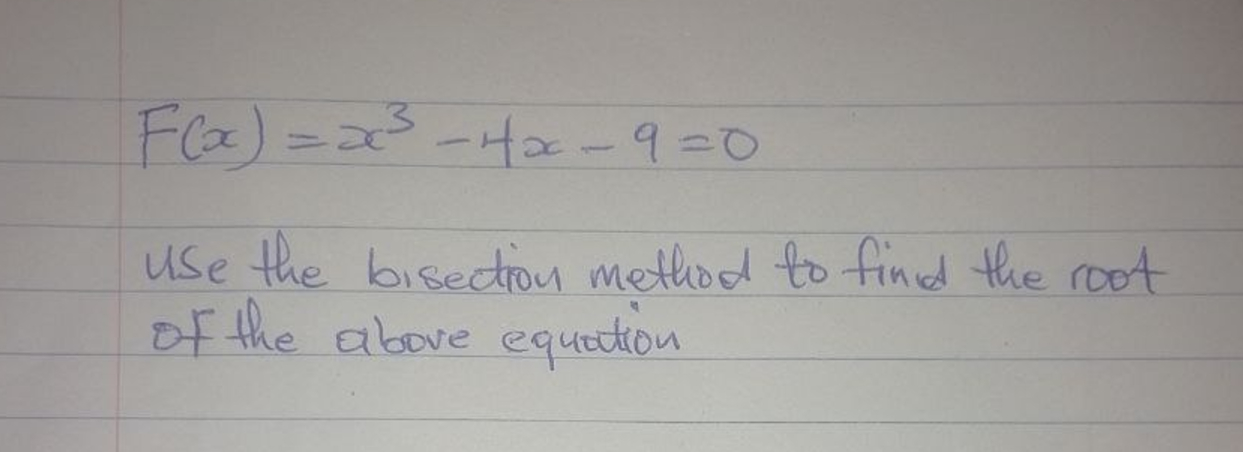 F(x) = x³ - 4x - 9 = 0
use the bisection method to find the root
of the above equation